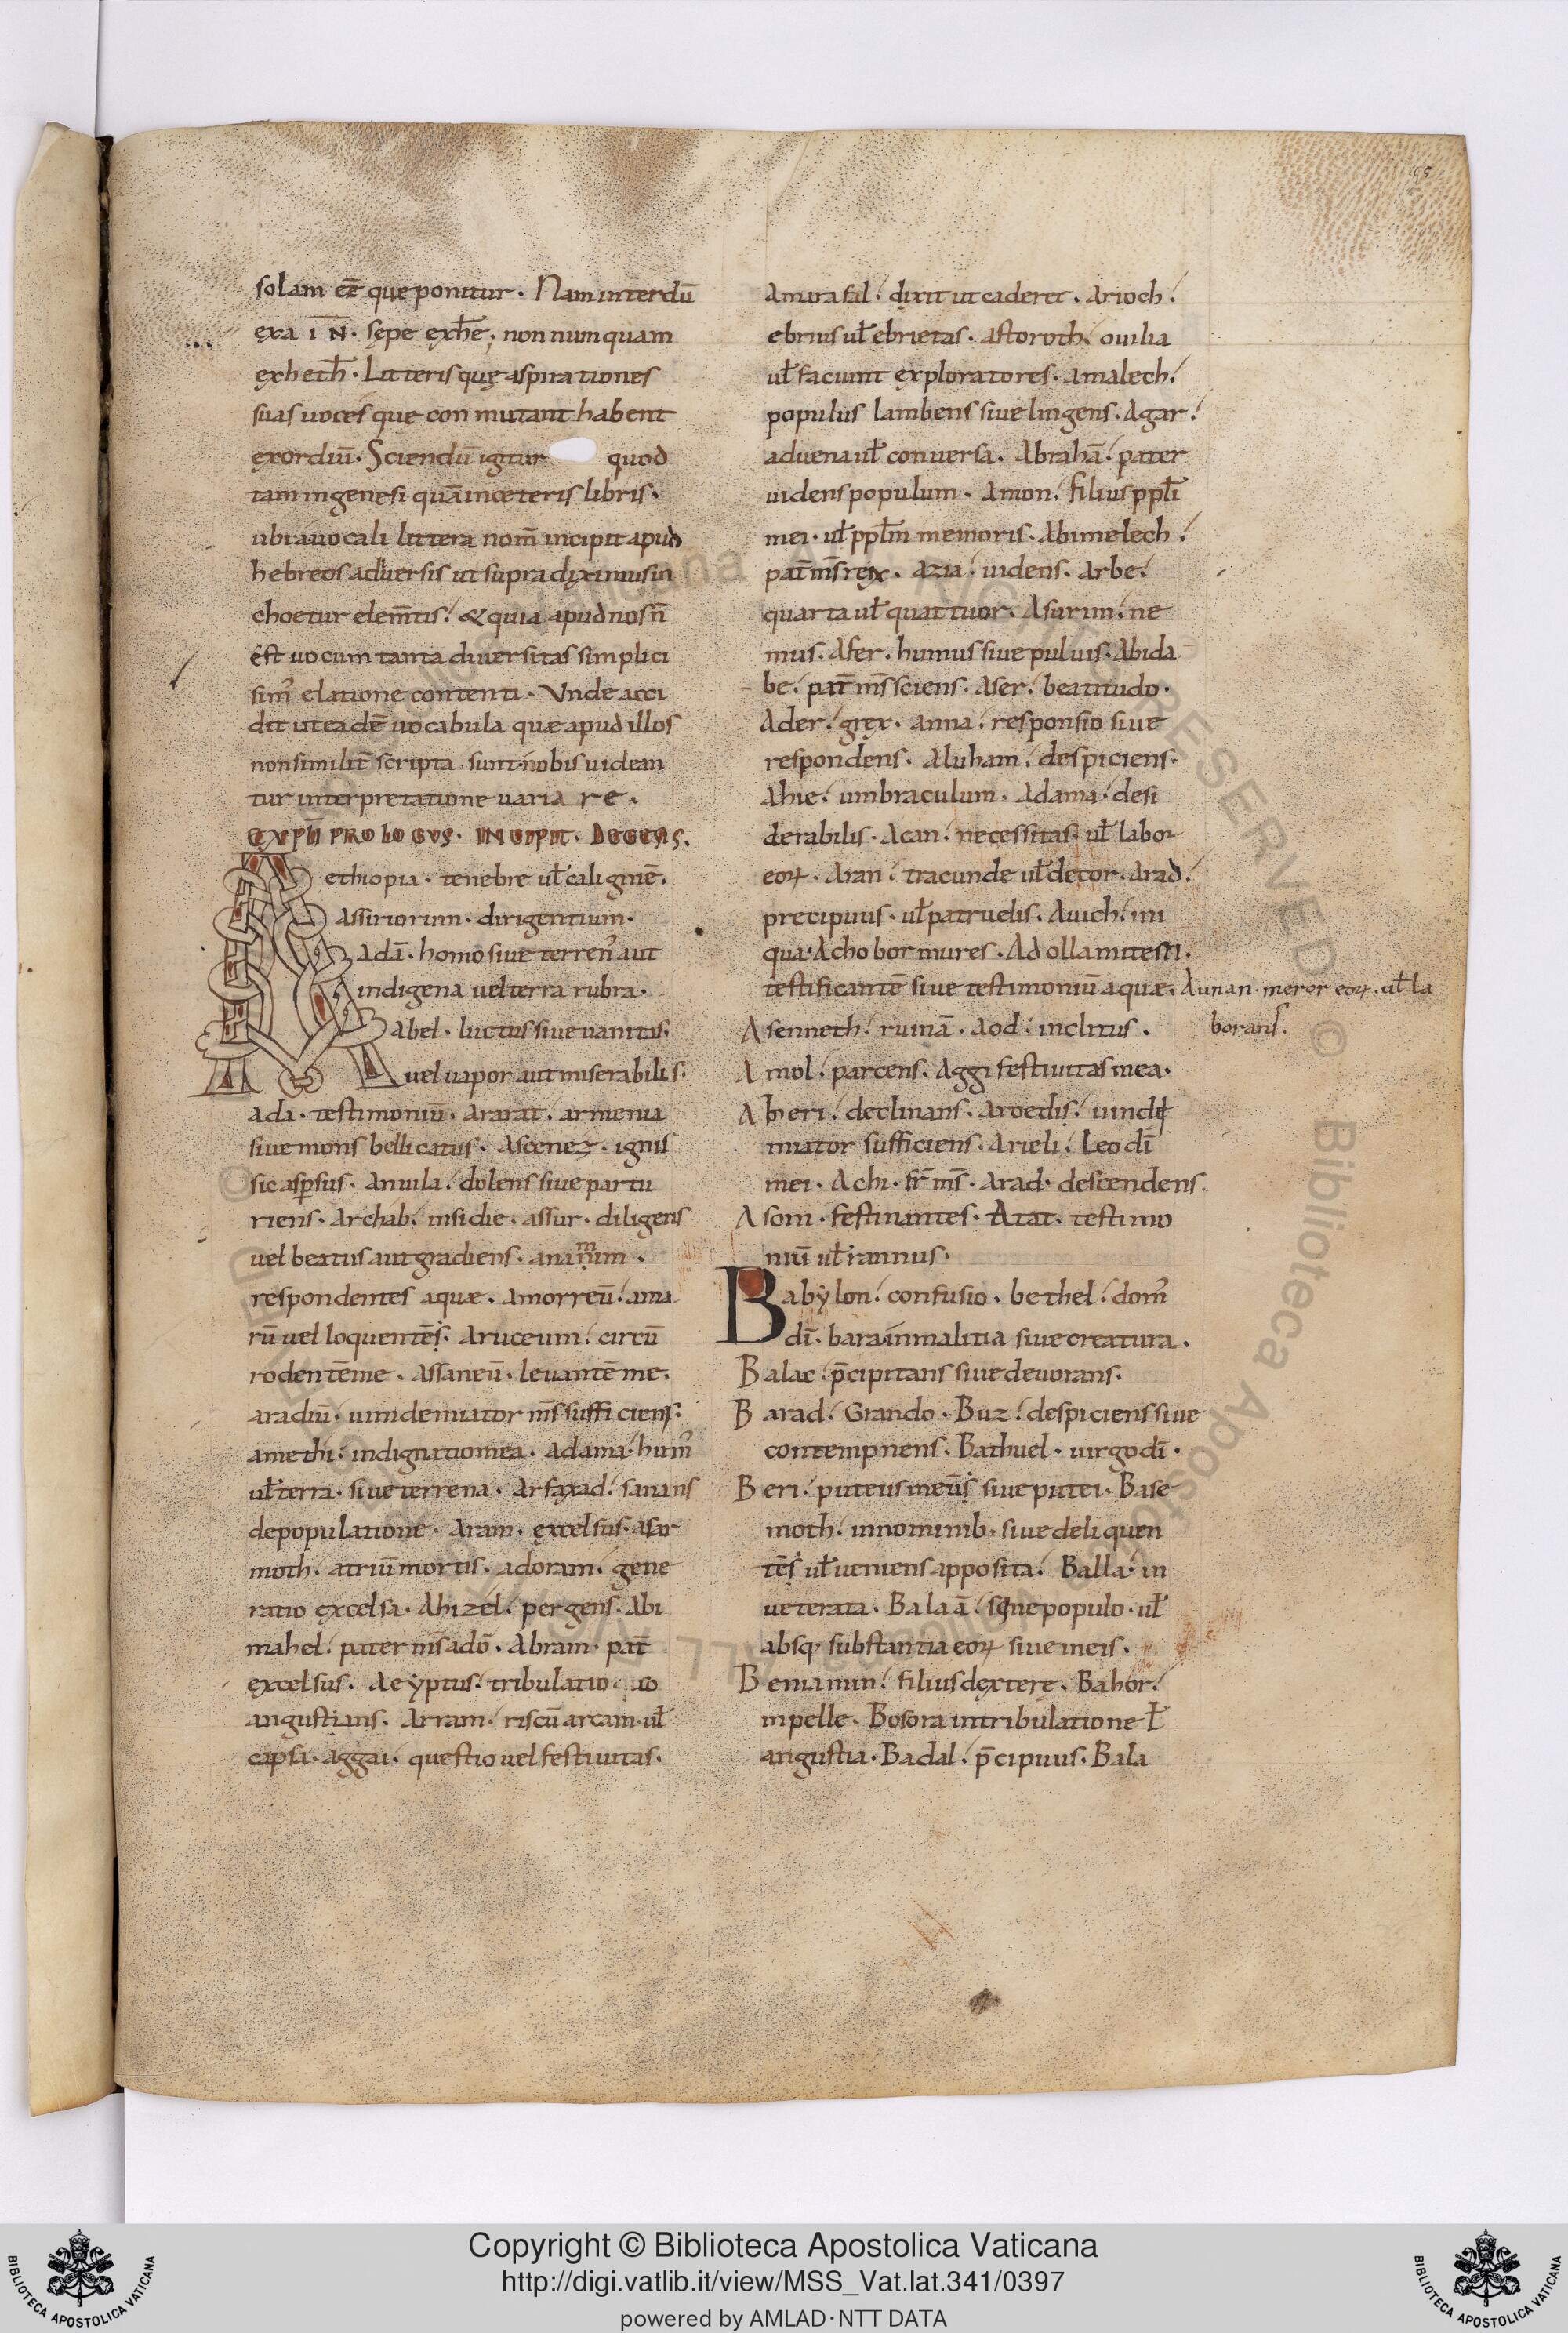 solam eē que ponitur. Nam interdū
exa IN̄. sępe exhe; non numquam
exheth̄. Litterisquę aspirationes
suas uocesque conmutant habent
exordiū. Sciendū igitur quod
tam ingenesi quā inceteris libris.
ubi áuocali littera nom̄ incipit apud
hebreos adiuersis ut supra diximus in
choetur elem̄tis. & quia apud nos n̄
est uocum tanta diuersitas simplici
sim᾿ elatione contenti. Vnde acci
dit ut eadē uocabula quæ apud illos
non similit̄ scripta sunt nobis uidean
tur interpretatione uaria re.
EXPLI PROLOGVS. INCIPIT. DEGENS.
ethiopia. tenebre ul̄ caliginē.
Assiriorum. dirigentium.
Adā. homo siue terren᾿ aut
indigena uel terra rubra.
Abel. luctus siue uanitas.
uel uapor aut miserabilis.
ada. testimoniū. ararat. armenia
siue mons bellicatus. Ascenez. ignis
sic asp̄sus. Anuila. dolens siue partu
riens. Archab. insidie. assur. diligens
uel beatus aut gradiens. anamim.
respondentes aquæ. Amorreū. ama
rū uel loquentēs. Aruceum. circū
rodentēme. Assaneū. leuantē me.
aradiū. uindemiator m̄s sufficiens.
amethi. indignatio mea. adama. hum᾿
ul̄ terra. siue terrena. Arfaxad. sanans
depopulationē. Aram. excelsus. asar
moth. atriū mortis. adoram. gene
ratio excelsa. Ahizel. pergens. Abi
mahel. pater m̄s adō. Abram. pat̄
excelsus. Aeyptus. tribulatio io
angustians. Arram. riscū arcam. ul̄
capsa. aggai. questio uel festiuitas.
Amrafal. dixit ut caderet. Arioch.
ebrius ul̄ ebrietas. astoroth. ouilia
ul̄ faciunt exploratores. amalech.
populus lambens siue lingens. Agar.
aduena ul̄ conuersa. Abrahā. pater
uidens populum. Amon. filius ppl̄i
mei. ul̄ ppl̄m memoris. Abimelech.
pat̄ m̄s rex. Azia. uidens. Arbe.
quarta ul̄ quattuor. Asurim. ne
mus. Afer. humus siue puluis. Abida
be. pat̄ m̄s sciens. Aser. beatitudo.
Ader. grex. anna. responsio siue
respondens. Aluham. despiciens.
Ahie. umbraculum. Adama. desi
derabilis. Acan. necessitas ul̄ labor
eoꝝ. Aran. iracunde ul̄ decor. Arad.
precipuus. ul̄ patruelis. Auich. ini
qua. Achobor mures. Adollamitem.
testificantē siue testimoniū aquæ. Aunan. meror eoꝝ. ul̄ la
borans.
Asenneth. ruinā. Aod. inclitus.
Amol. parcens. Aggi festiuitas mea.
Aheri. declinans. Aroedis. uinde
miator sufficiens. Arieli. Leo dī
mei. Achi. fr̄ m̄s. Arad. descendens.
Asom. festinantes. Atat. testimo
niū ul̄ rannus.
Babẏlon. confusio. bethel. dom᾿
dī. bara. inmalitia siue creatura.
Balac. p̄cipitans siue deuorans.
Barad. Grando. Buz. despiciens siue
contempnens. Bathuel. uirgo dī.
Beri. puteus meūs siue putei. Base
moth. innominib; siue deliquen
tēs ul̄ ueniens apposita. Balla. in
ueterata. Balaā. sine populo. ul̄
absq; substantia eoꝝ siue ineis.
Beniamin. filius dextere. Bahor.
inpelle. Bosora intribulatione l̄
angustia. Badal. p̄cipuus. Bala
Copyright © Biblioteca Apostolica Vaticana
http://digi.vatlib.it/view/MSS_Vat.lat.341/0397
powered by AMLAD·NTT DATA
BIBLIOTECA APOSTOLICA VATICANA
BIBLIOTECA APOSTOLICA VATICANA